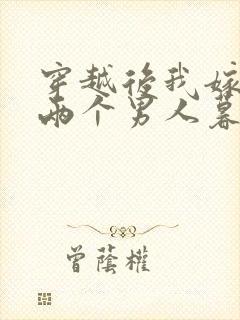 穿越後我嫁
兩个男人暮
曾蔭權